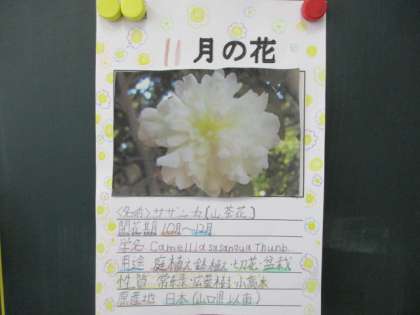 11月の花
〈名前〉サザンカ[山茶花]
開花期 10月〜12月
学名 Camellia sasanqua Thunb.
用途 庭植え 鉢植え 切花 盆栽
性質 常緑 広葉樹 小高木
原産地 日本(山口県以南)